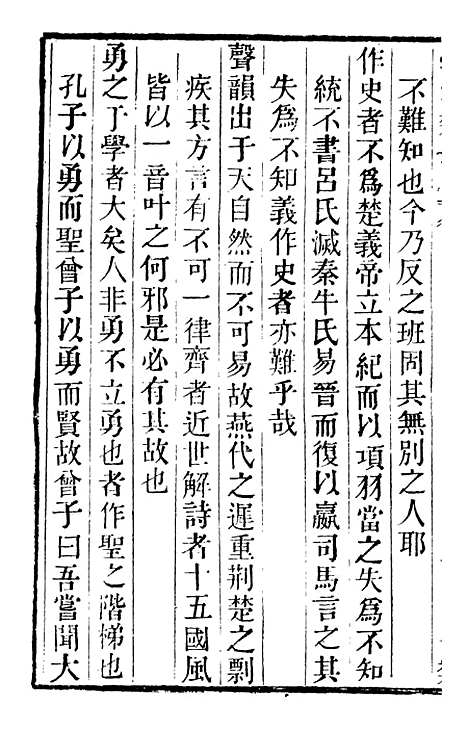 不難知也今乃反之班固其無別之人耶
作史者不爲楚義帝立本紀而以項羽當之失爲不知
統不書呂氏滅秦牛氏易晉而復以嬴司馬言之其
失爲不知義作史者亦難乎哉
聲韻出于天自然而不可易故燕代之遲重荆楚之剽
疾其方言有不可一律齊者近世解詩者十五國風
皆以一音叶之何邪是必有其故也
勇之于學者大矣人非勇不立勇也者作聖之階梯也
孔子以勇而聖曾子以勇而賢故曾子曰吾嘗聞大